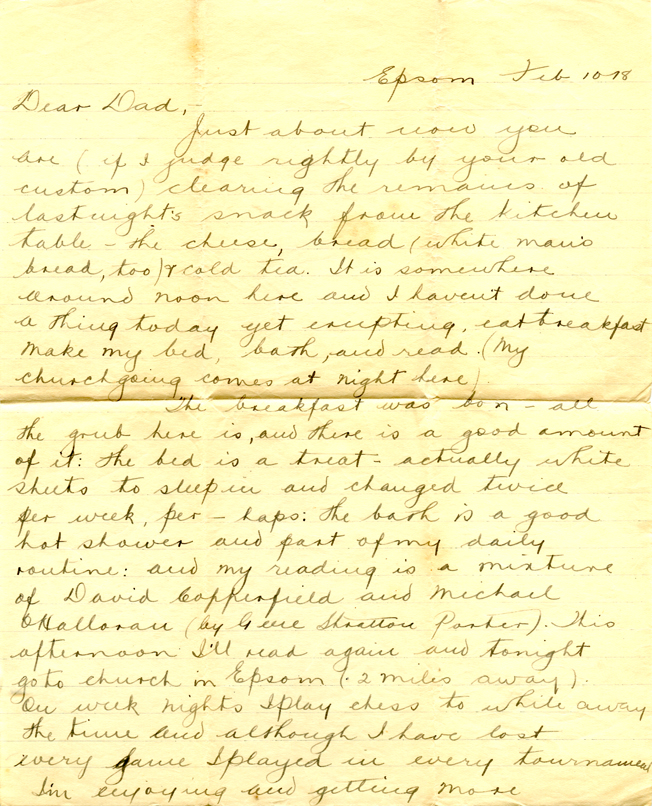 Epsom Feb 10-18
Dear Dad,-
Just about now you
are (if I judge rightly by your old
custom) clearing the remains of
lastnight's snack from the kitchen
table - the cheese, bread (white man's
bread, too) & cold tea. It is somewhere
around noon here and I haven't done
a thing today yet, eat breakfast
make my bed, bath, and read. (My
churchgoing comes at night here).
The breakfast was bon - all
the grub here is, and there is a good amount
of it: the bed is a treat - actually white
sheets to sleep in and changed twice
per week, per - haps: the bath is a good
hot shower and part of my daily
routine: and my reading is a mixture
of David Copperfield and Michael
O'Halloran (by Gene Stratton Porter). This
afternoon I'll read again and tonight
go to church in Epsom (. 2 miles away).
On week nights I play chess to while away
the time and although I have lost
every game I played in every tournament
I'm enjoying and getting more